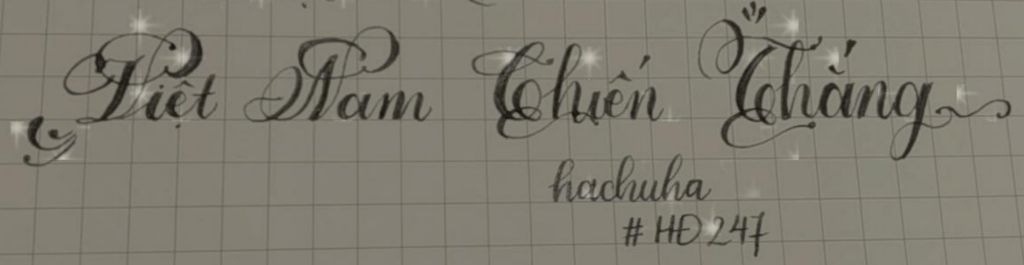 Việt Nam Chiến Thắng
hachuha
#HĐ247